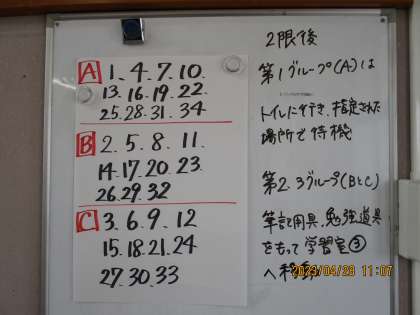 A 1. 4. 7. 10.
13. 16. 19. 22
25. 28. 31. 34
B 2. 5. 8. 11.
14. 17. 20. 23
26. 29. 32
C 3. 6. 9. 12
15. 18. 21. 24
27. 30. 33
2限後
第1グループ(A)は
トイレに行き、指定された
場所で待機
第2.3グループ(BとC)
筆記用具、勉強道具
をもって学習室③
へ移動
2023/04/28 11:07